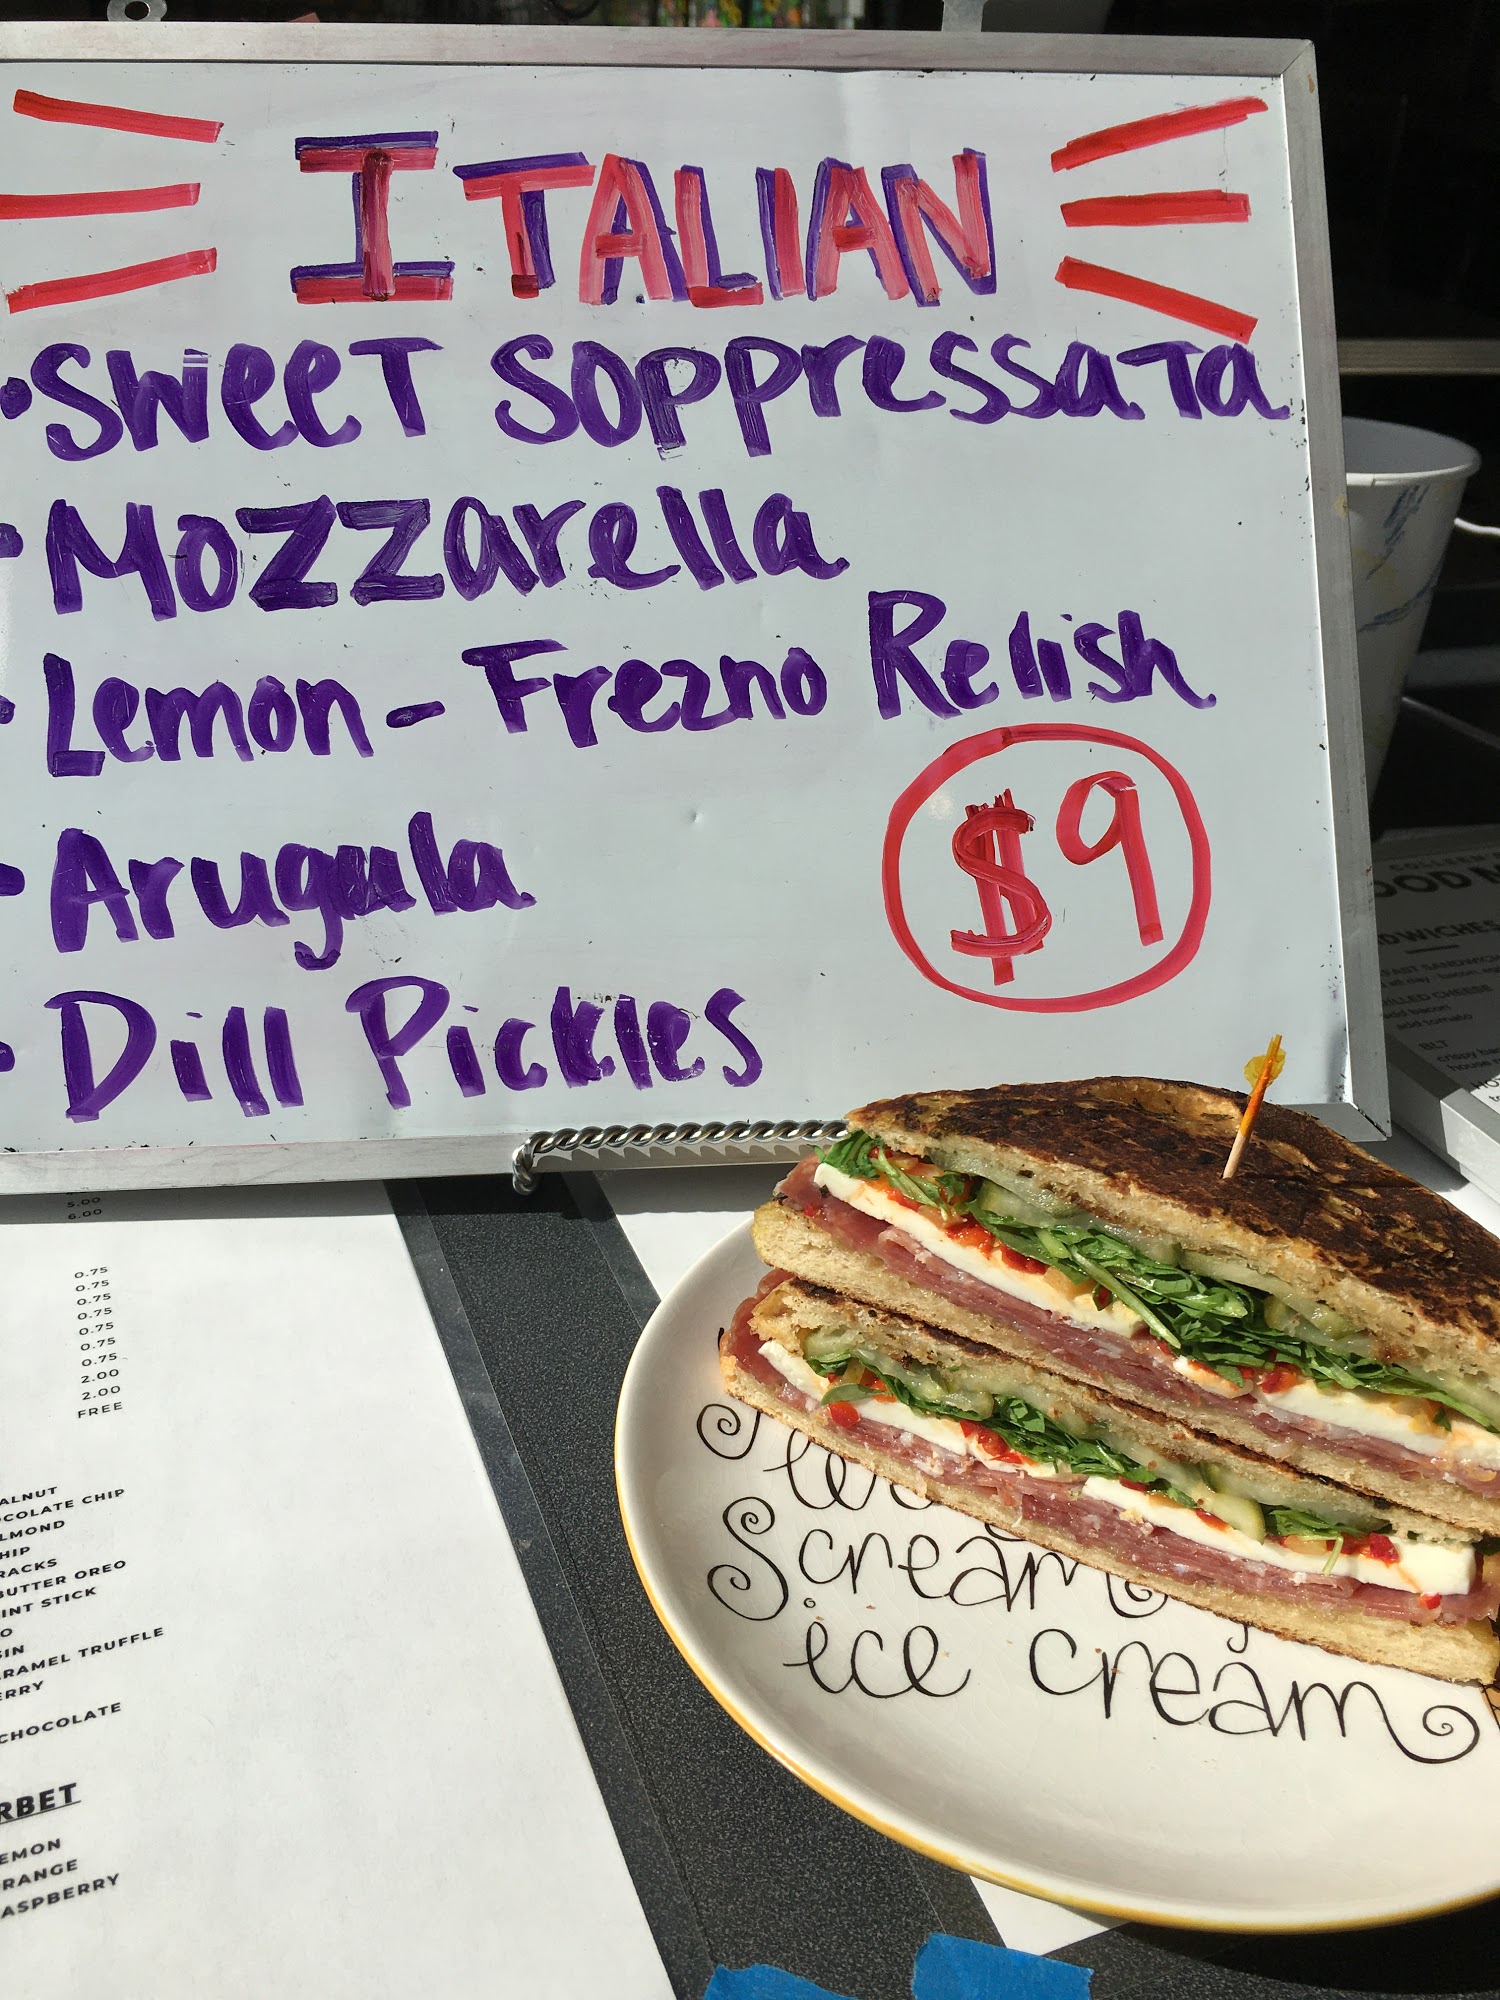 ITALIAN
• Sweet Soppressata
• Mozzarella
• Lemon - Frezno Relish
• Arugula
• Dill Pickles
$9
SANDWICH
GRILLED CHEESE
add bacon
add tomato
BLT
5.00
6.00
0.75
0.75
0.75
0.75
0.75
0.75
0.75
2.00
2.00
FREE
ALNUT
OCOLATE CHIP
LMOND
HIP
RACKS
BUTTER OREO
INT STICK
O
SIN
ARAMEL TRUFFLE
ERRY
CHOCOLATE
RBET
EMON
RANGE
ASPBERRY
Scream
ice cream